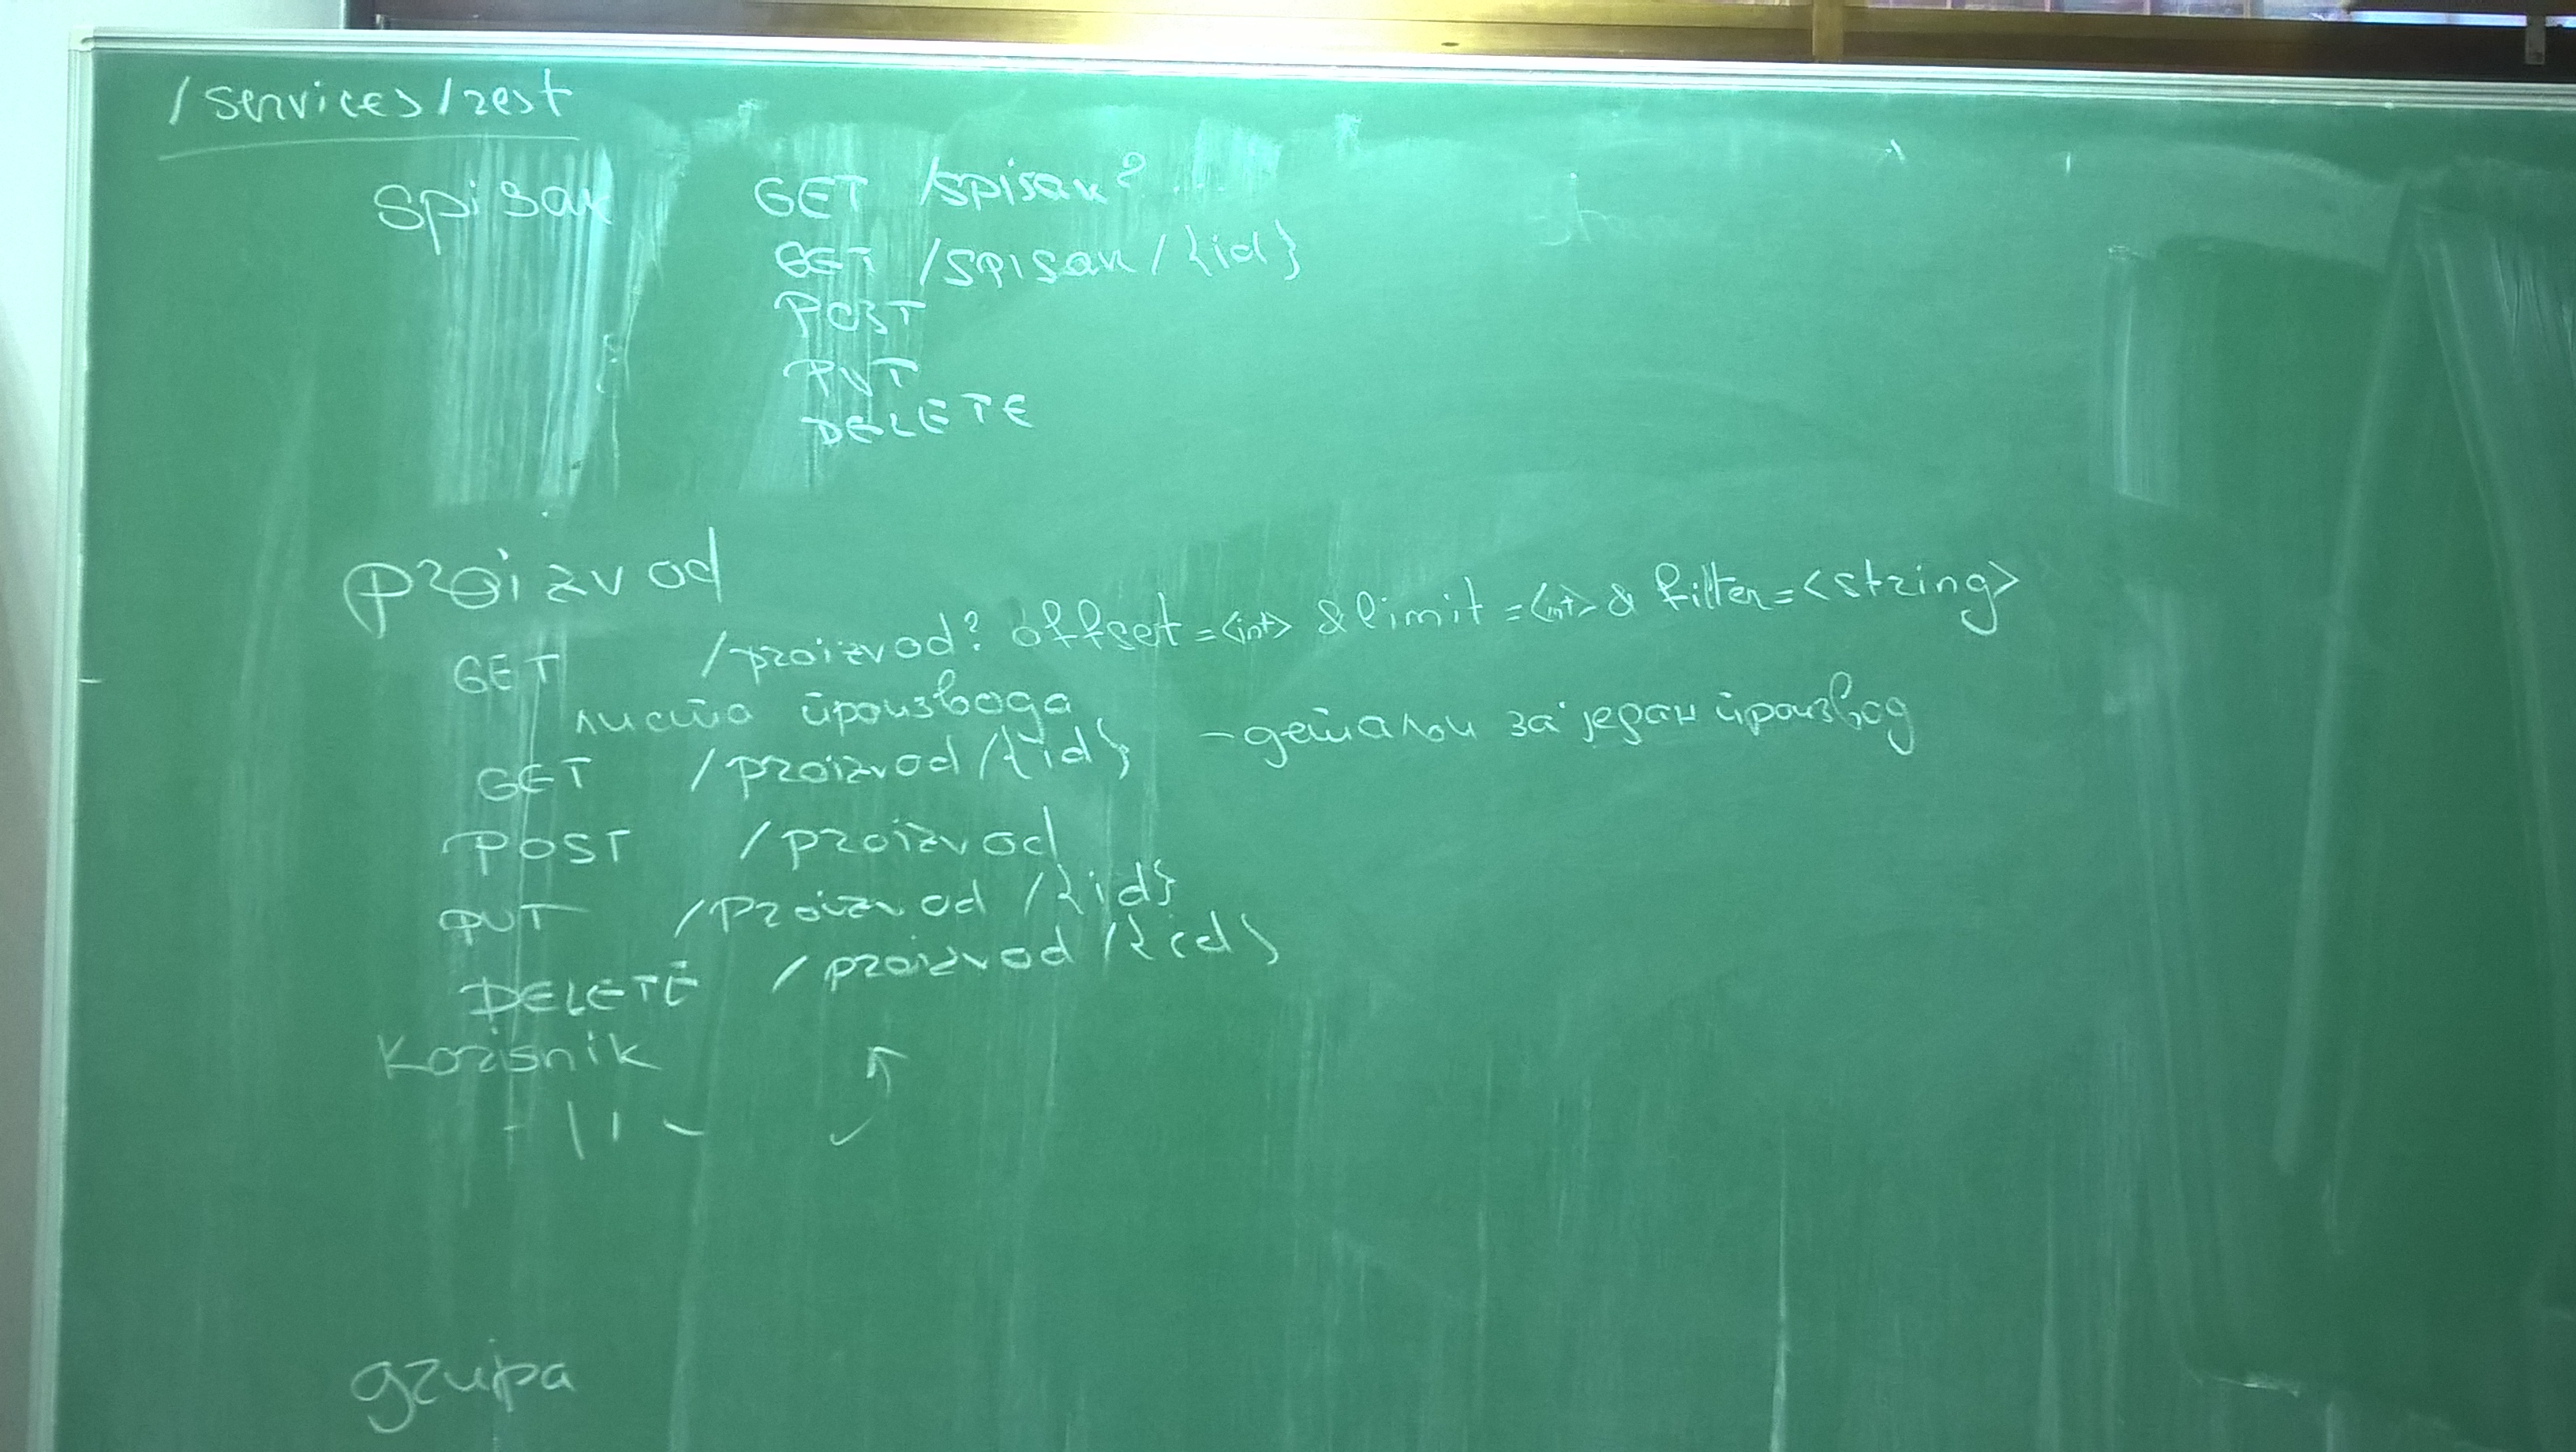 /services/rest
spisak GET /spisak? ...
GET /spisak/{id}
POST
PUT
DELETE
proizvod
GET /proizvod? offset=<int> &limit=<int> & filter=<string>
листа производа
GET /proizvod/{id} - детаљи за један производ
POST /proizvod
PUT /proizvod/{id}
DELETE /proizvod/{id}
Korisnik
-||-
grupa